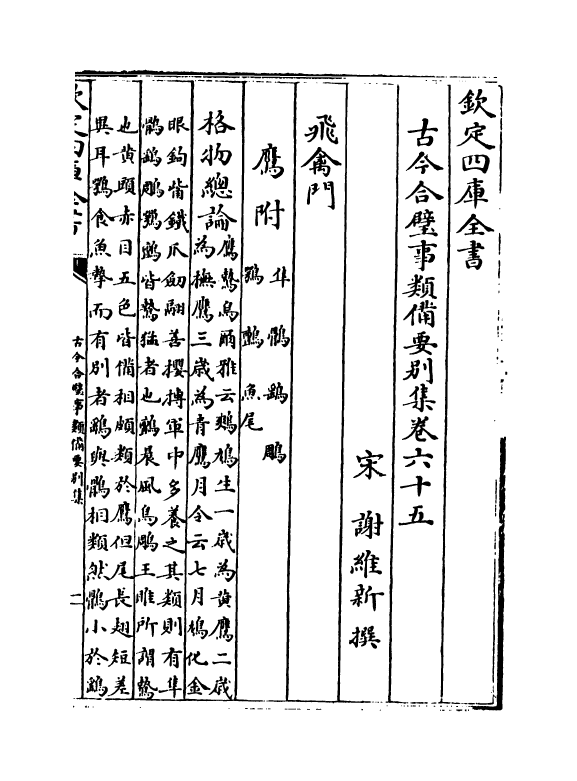 欽定四庫全書
古今合璧事類備要別集卷六十五
宋 謝維新 撰
飛禽門
鷹附 隼 鶻 鷂 鵰
鶚 鸇 魚尾
格物總論 鷹鷙鳥爾雅云鷞鳩生一歲為黃鷹二歲
為撫鷹三歲為青鷹月令云七月鳩化金
眼鉤觜鐵爪劒翮善攖搏軍中多養之其類則有隼
鶻鷂鵰鶚鸇皆鷙猛者也鸇晨風鳥鵰王雎所謂鷙
也黃頭赤目五色皆備相頗類於鷹但尾長翅短差
異耳鶚食魚摯而有別者鷂與鶻相類然鶻小於鷂
欽定四庫全書
古今合璧事類備要別集
二